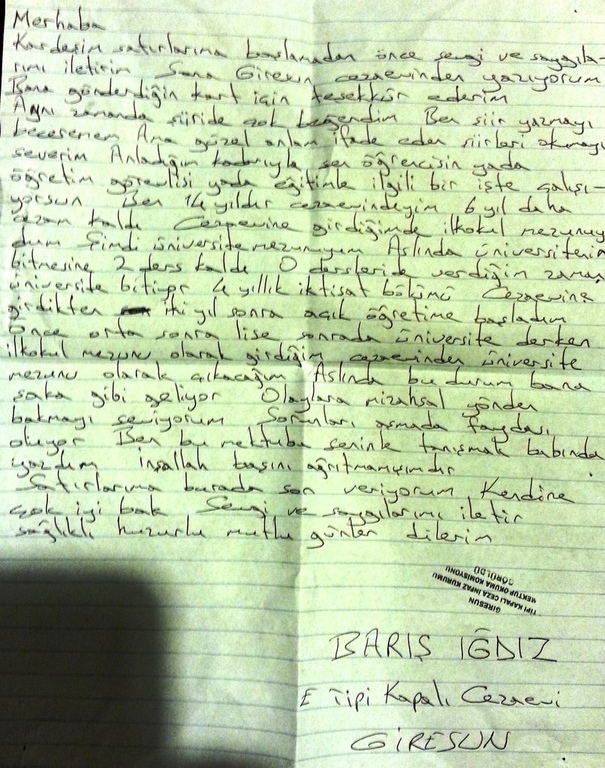 Merhaba
Kardeşim satırlarıma başlamadan önce sevgi ve saygıla-
rımı iletirim Sana Giresun cezaevinden yazıyorum
Bana gönderdiğin kart için teşekkür ederim
Aynı zamanda şiiride çok beğendim Ben şiir yazmayı
beceremem Ama güzel anlam ifade eden şiirleri okumayı
severim Anladığım kadarıyla sen öğrencisin yada
öğretim görevlisi yada eğitimle ilgili bir işte çalışı-
yorsun Ben 14 yıldır cezaevindeyim 6 yıl daha
cezam kaldı Cezaevine girdiğimde ilkokul mezunuy
dum Şimdi üniversite mezunuyum Aslında üniversitenin
bitmesine 2 ders kaldı O dersleride verdiğim zaman
üniversite bitiyor 4 yıllık iktisat bölümü Cezaevine
girdikten iki yıl sonra açık öğretime başladım
Önce orta sonra lise sonrada üniversite derken
ilkokul mezunu olarak girdiğim cezaevinden üniversite
mezunu olarak çıkacağım Aslında bu durum bana
şaka gibi geliyor Olaylara mizahsal yönden
bakmayı seviyorum Sorunları aşmada faydası
oluyor Ben bu mektubu seninle tanışmak babında
yazdım inşallah başını ağrıtmamışımdır
Satırlarıma burada son veriyorum Kendine
çok iyi bak Sevgi ve saygılarımı iletir
sağlıklı huzurlu mutlu günler dilerim
GİRESUN
TİPİ KAPALI CEZA İNFAZ KURUMU
MEKTUP OKUMA KOMİSYONU
GÖRÜLDÜ
BARIŞ IĞDIZ
E Tipi Kapalı Cezaevi
GİRESUN